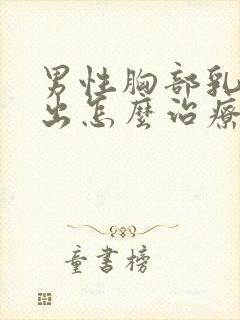 男性胸部乳
出怎麼治療
童書榜